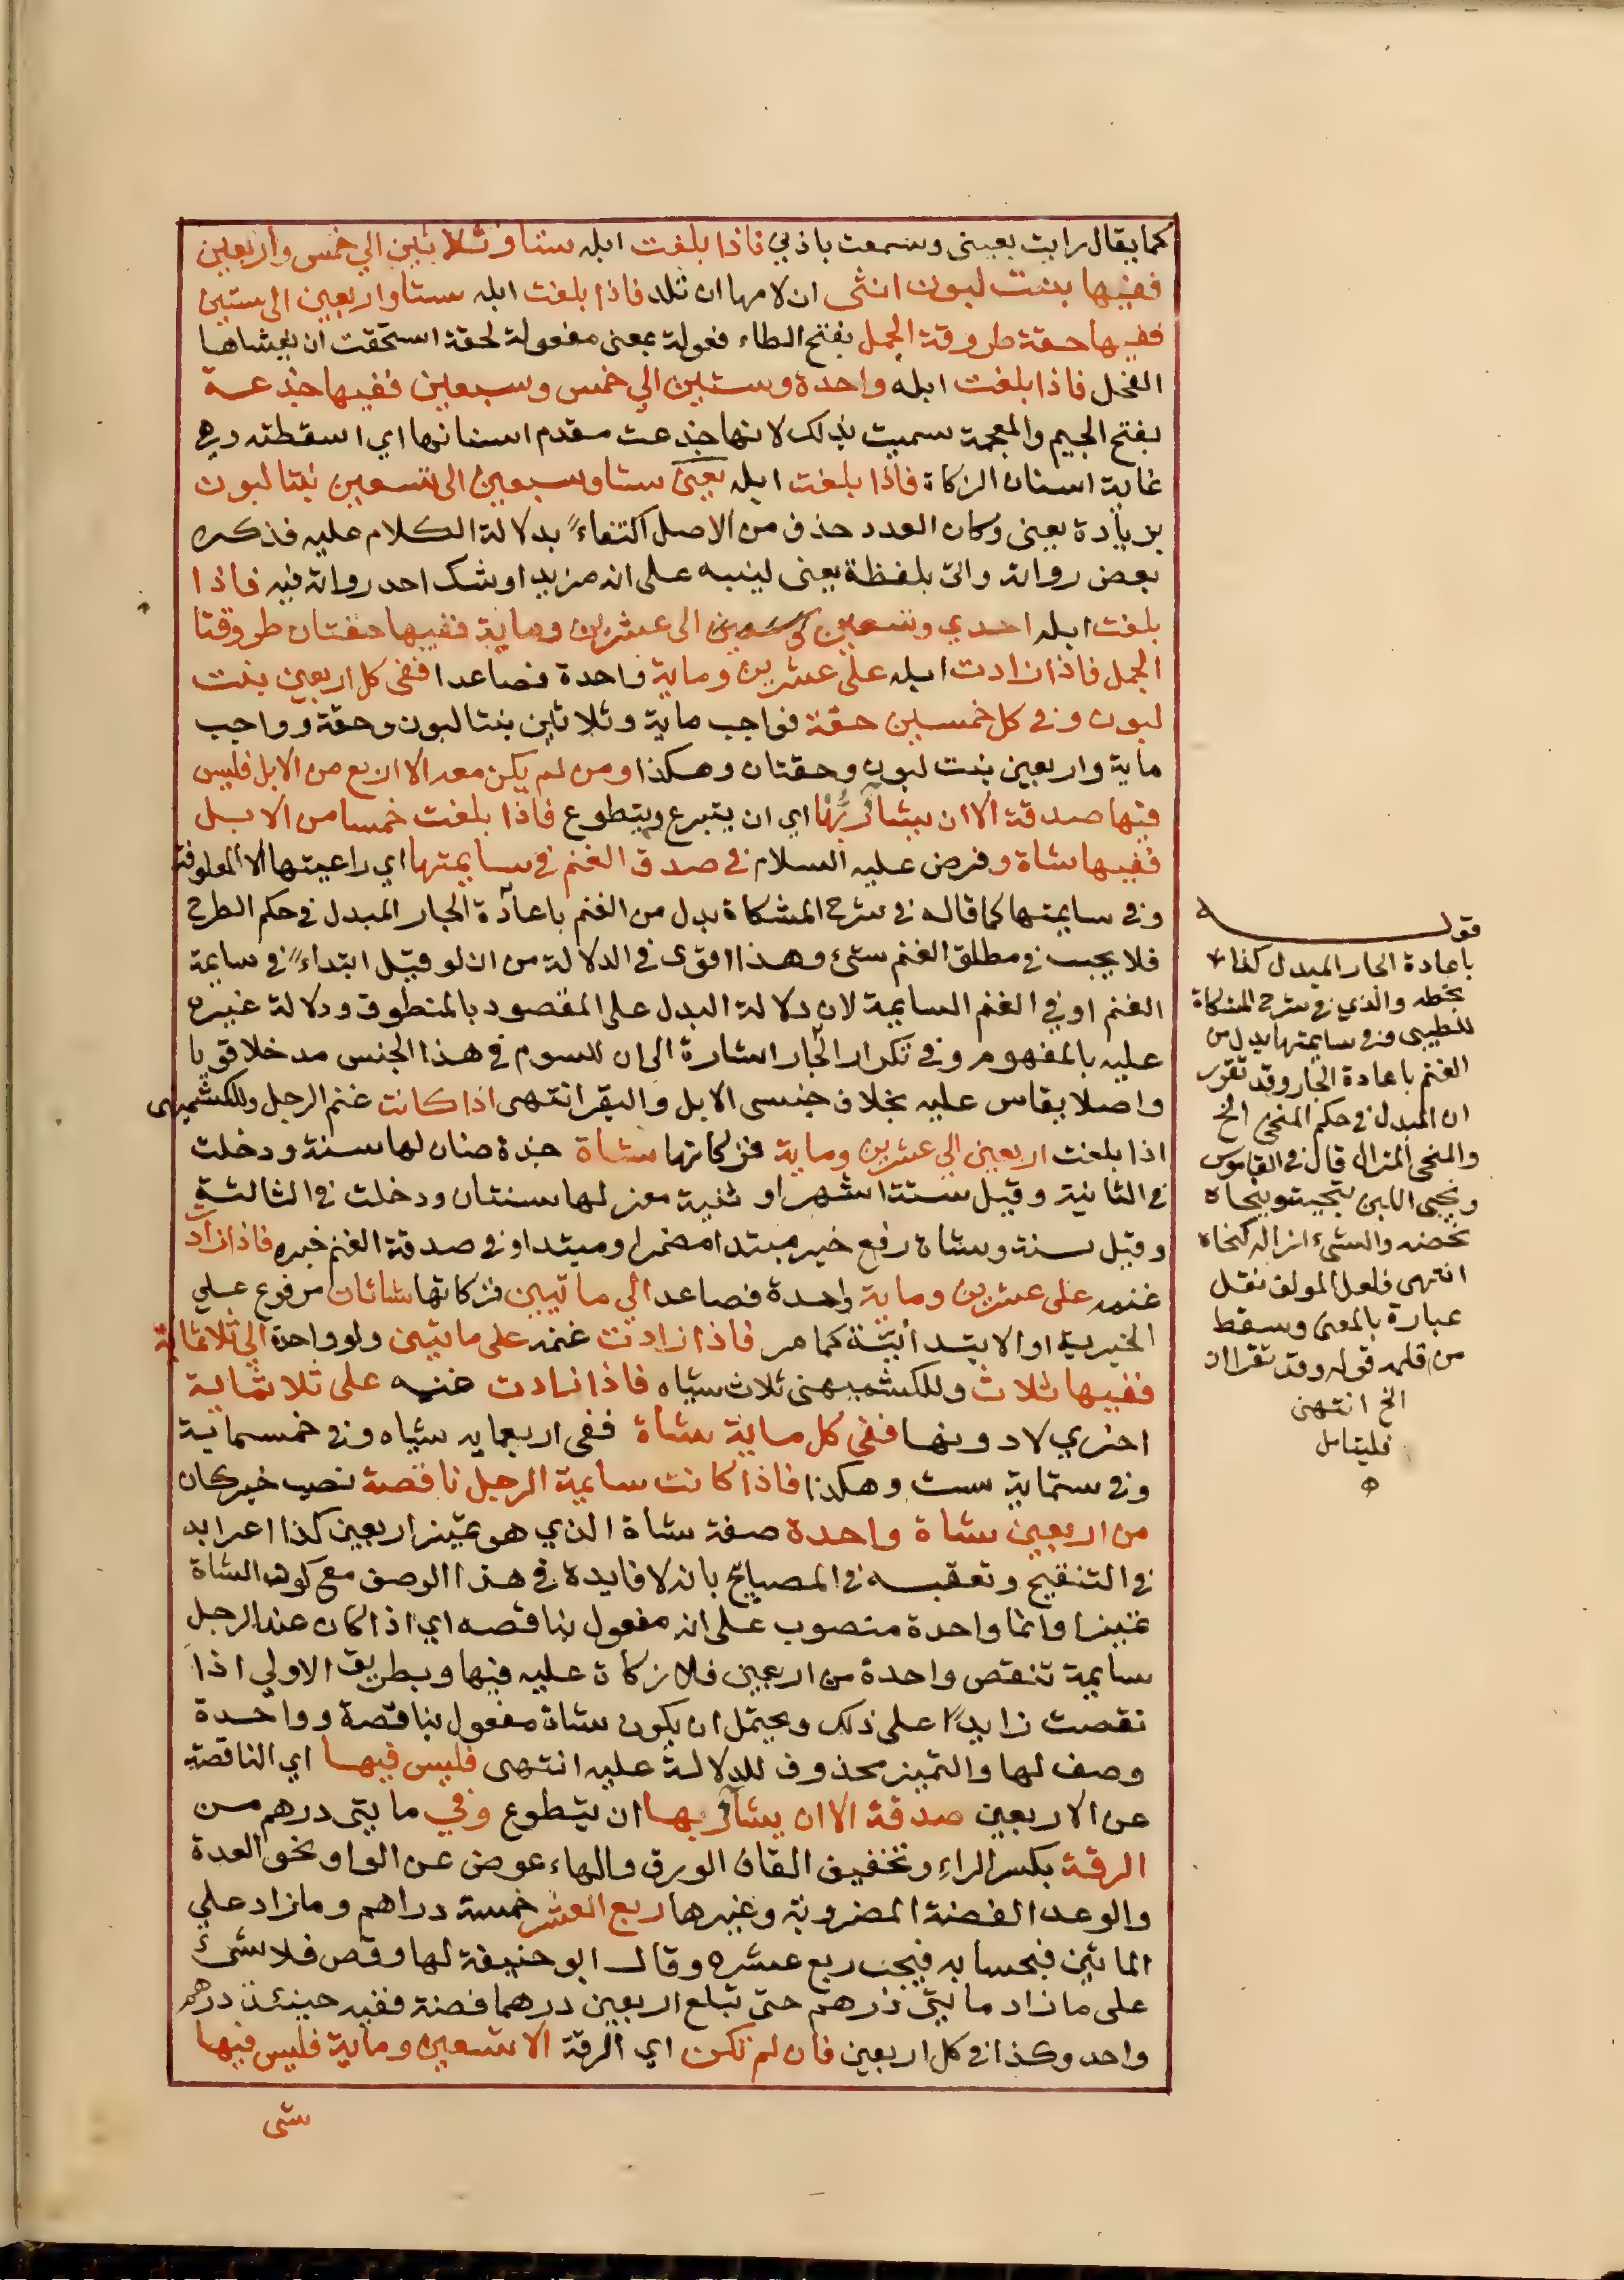 كما يقال رايت بعيني وسمعت باذني فاذا بلغت ابله ستا وثلاثين الي خمس واربعين
ففيها بنت لبون انثى ان لامها ان تلد فاذا بلغت ابله ستا واربعين الى ستين
ففيها حقة طروقة الجمل بفتح الطاء فعولة بمعنى مفعولة لحقة استحقت ان يغشاها
الفحل فاذا بلغت ابله واحدة وستين الي خمس وسبعين ففيها جذعة
بفتح الجيم والمعجمة سميت بذلك لانها جذعت مقدم اسنانها اي اسقطته وهي
غاية اسنان الزكاة فاذا بلغت ابله يعني ستا وسبعين الى تسعين بنتا لبون
بزيادة يعنى وكان العدد حذف من الاصل اكتفاء بدلالة الكلام عليه فذكره
بعض رواته واتى بلفظة يعنى لينبه على انه مزيد او شك احد رواته فيه فاذا
بلغت ابله احدي وتسعين الى عشرين وماية ففيها حقتان طروقتا
الجمل فاذا زادت ابله على عشرين وماية واحدة فصاعدا ففى كل اربعين بنت
لبون وفي كل خمسين حقة فواجب ماية وثلاثين بنتا لبون وحقة وواجب
ماية واربعين بنت لبون وحقتان وهكذا ومن لم يكن معه الا اربع من الابل فليس
فيها صدقة الا ان يشاء ربها اي ان يتبرع ويتطوع فاذا بلغت خمسا من الابل
ففيها شاة وفرض عليه السلام في صدقة الغنم في سايمتها اي راعيتها لا المعلوفة
وفي سايمتها كما قاله في شرح المشكاة بدل من الغنم باعادة الجار المبدل في حكم الطرح
فلا يجب في مطلق الغنم شئ وهذا اقوى في الدلالة من ان لو قيل ابتداء في سايمة
الغنم او في الغنم السايمة لان دلالة البدل على المقصود بالمنطوق ودلالة غيره
عليه بالمفهوم وفي تكرار الجار اشارة الى ان للسوم في هذا الجنس مدخلا قويا
واصلا يقاس عليه بخلاف جنسي الابل والبقر انتهى اذا كانت غنم الرجل وللكشميهنى
اذا بلغت اربعين الي عشرين وماية فزكاتها شاة جذعة ضان لها سنة ودخلت
في الثانية وقيل ستة اشهر او ثنية معز لها سنتان ودخلت في الثالثة
وقيل سنة وشاة رفع خبر مبتدا مضمر او مبتدا وفي صدقة الغنم خبره فاذا زاد
غنمه على عشرين وماية واحدة فصاعدا الي مائتين فزكاتها شاتان مرفوع علي
الخبرية او الابتدائية كما مر فاذا زادت غنمه على مائتين ولو واحدة الي ثلاثماية
ففيها ثلاث وللكشميهنى ثلاث شياه فاذا زادت غنمه على ثلاثماية
اخري لا دونها ففي كل ماية شاة ففى اربعمايه شياه وفي خمسماية
وفي ستماية ست وهكذا فاذا كانت سايمة الرجل ناقصة نصب خبر كان
من اربعين شاة واحدة صفة شاة الذي هو تمييز اربعين كذا اعرابه
في التنقيح وتعقبه في المصابيح بانه لا فايدة في هذا الوصف مع كون الشاة
تمييزا وانما واحدة منصوب على انه مفعول بناقصه اي اذا كان عند الرجل
سايمة تنقص واحدة من اربعين فلا زكاة عليه فيها وبطريق الاولي اذا
نقصت زايدا على ذلك ويحتمل ان يكون شاة مفعول بناقصة وواحدة
وصف لها والتمييز محذوف للدلالة عليه انتهى فليس فيها اي الناقصة
عن الاربعين صدقة الا ان يشاء ربها ان يتطوع وفي مايتى درهم من
الرقة بكسر الراء وتخفيف القاف الورق والهاء عوض عن الواو نحو العدة
والوعد الفضة المضروبة وغيرها ربع العشر خمسة دراهم وما زاد علي
المائتين فبحسابه فيجب ربع عشره وقال ابو حنيفة لها وقص فلا شئ
على ما زاد مايتى درهم حتى تبلغ اربعين درهما فضة ففيه حينئذ درهم
واحد وكذا في كل اربعين فان لم تكن اي الرقة الا تسعين وماية فليس فيها
شى
قوله
باعادة الجار المبدل كذا
بخطه والذي في شرح المشكاة
للطيبى وفي سايمتها بدل من
الغنم باعادة الجار وقد تقرر
ان المبدل في حكم المنحى الخ
والمنحى المزال قال في القاموس
ونحى اللبن ينحيه وينحاه
مخضه والشئ ازاله كنحاه
انتهى فلعل المولف نقل
عبارة بالمعنى وسقط
من قلمه قوله وقد تقرر ان
الخ انتهى
فليتامل